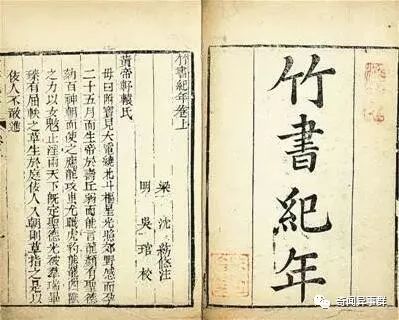 竹書紀年
竹書紀年卷上
梁 沈約附注
明 吳琯校
黃帝軒轅氏
母曰附寶見大電繞北斗樞星光照郊野感而孕
二十五月而生帝於壽丘弱而能言龍顏有聖德
劾百神朝而使之應龍攻蚩尤戰虎豹熊羆四
之力以女魃止淫雨天下既定聖德光被羣瑞畢
臻有屈軼之草生於庭佞人入朝則草指之是以
佞人不敢進
新闻异事群